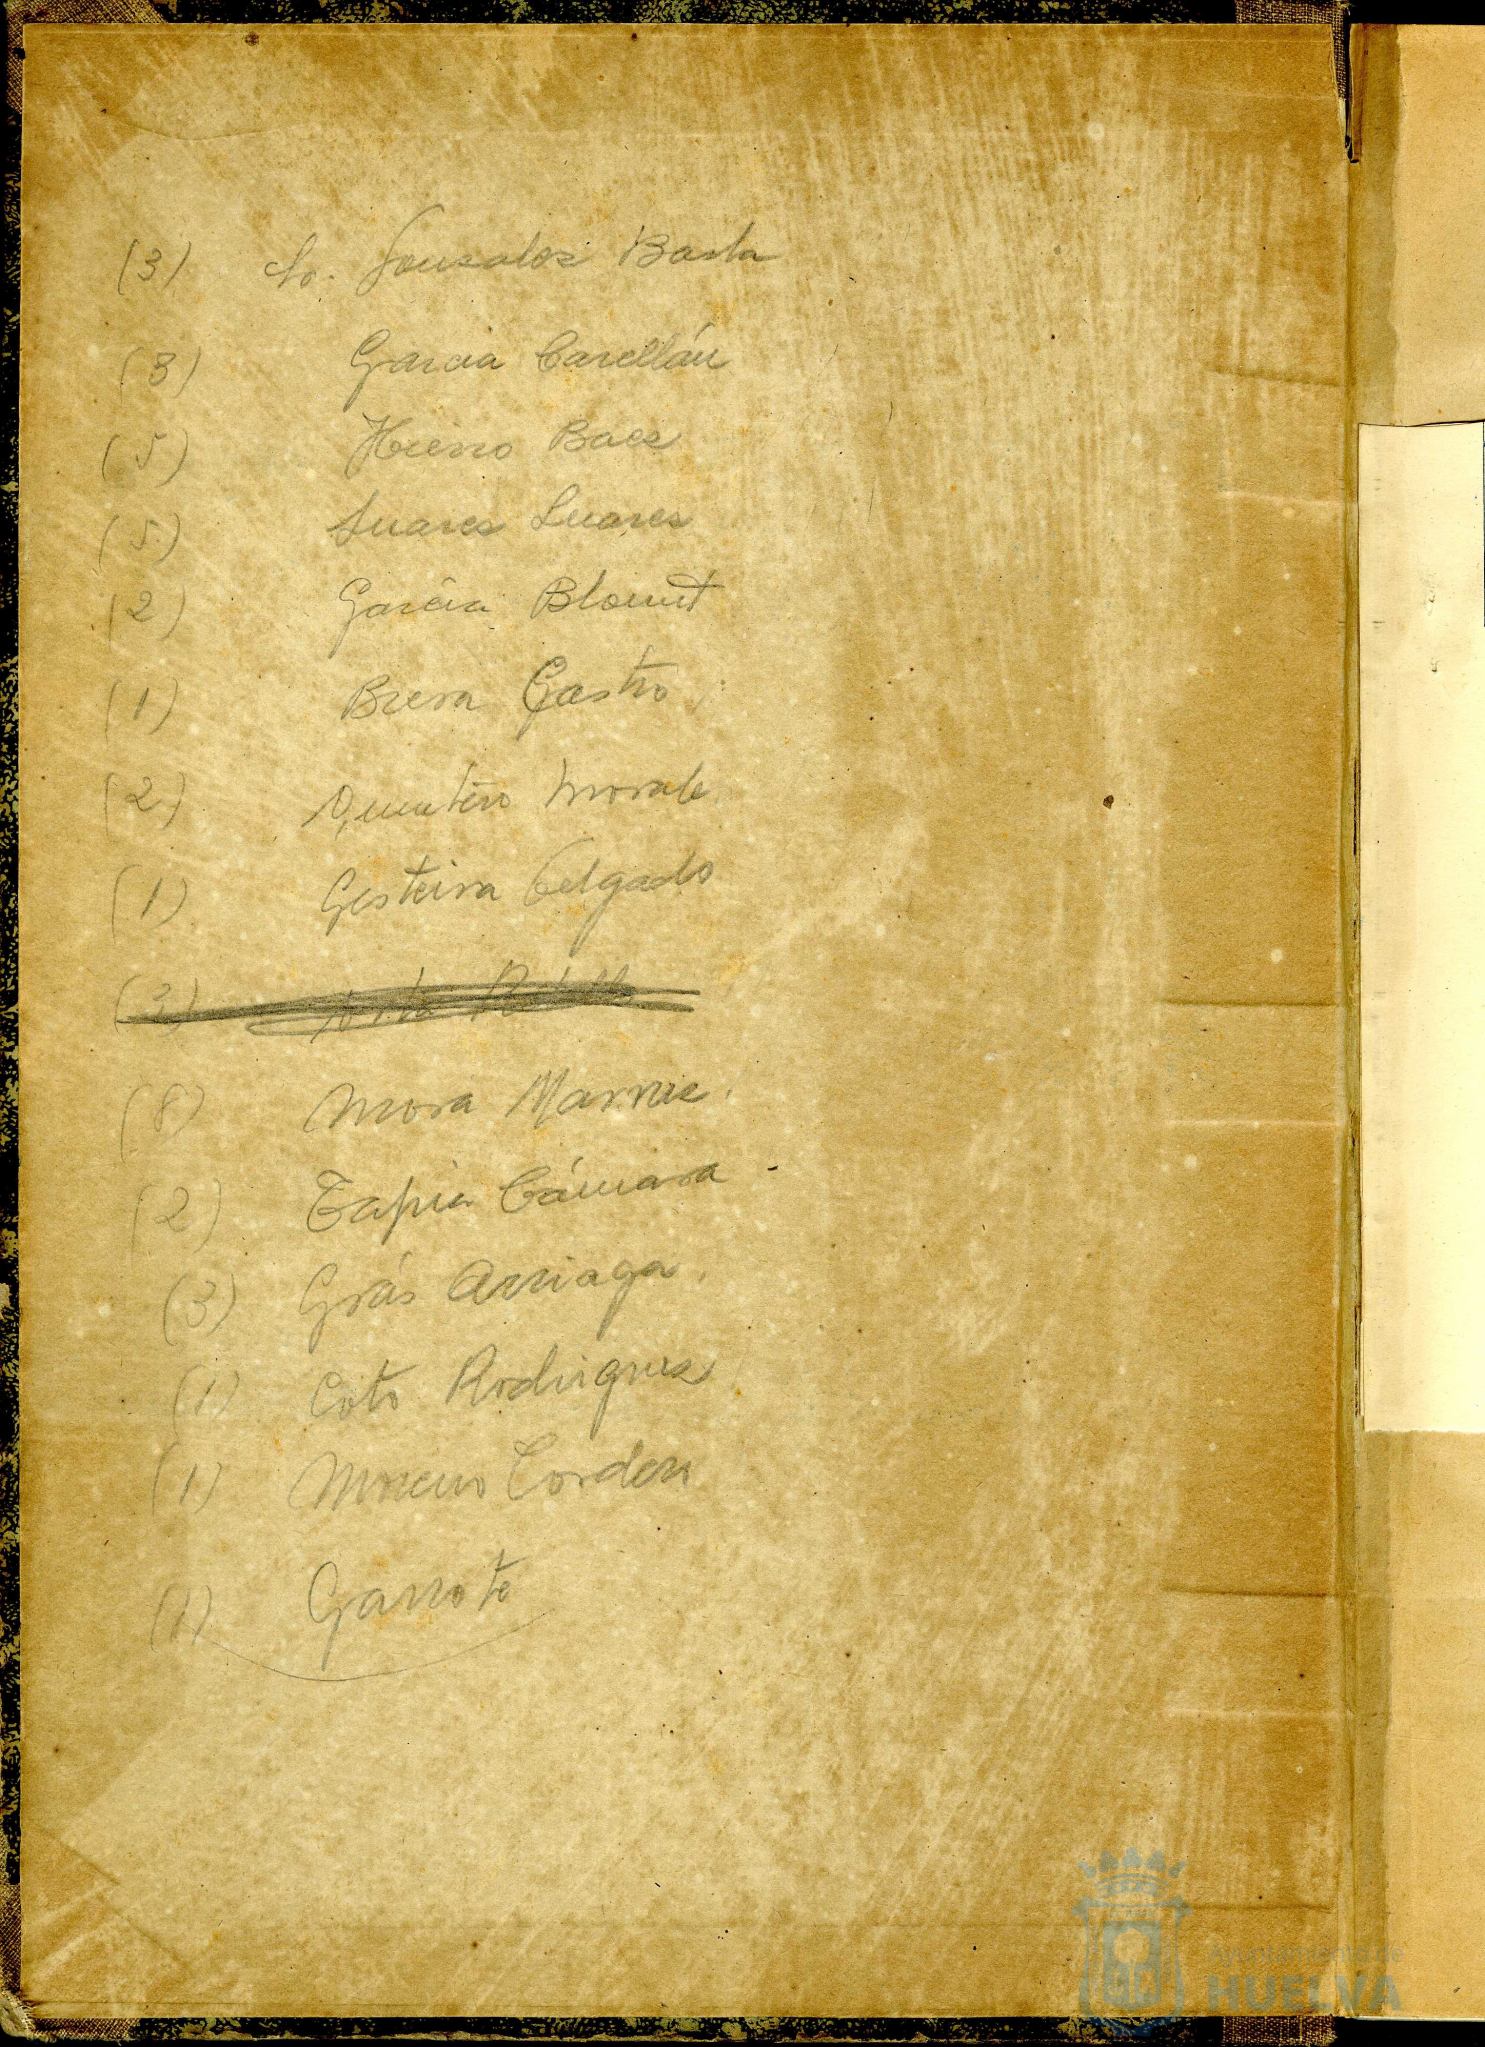 (3) So. Gonzalez Barba
(3) Garcia Carellán
(5) Hierro Baez
(5) Suarez Suarez
(2) Garcia Blount
(1) Brera Castro
(2) Quintero Morale
(1) Gesteira Delgado
(3)
(8) Mora Marruez.
(2) Tapia Cámara
(3) Grás Arriaga.
(1) Coto Rodriguez
(1) Moreno Cordero
(1) Garrote
Ayuntamiento de
HUELVA